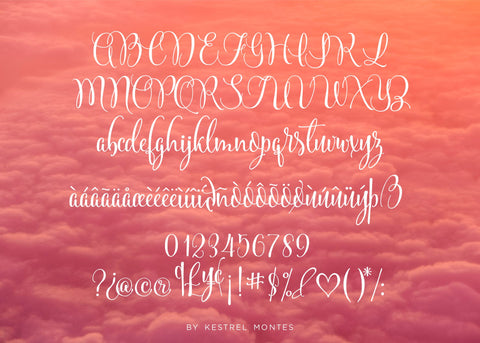 ABCDEFGHIJKL
MNOPQRSTUVWXYZ
abcdefghijklmnopqrstuvwxyz
àáâãäåæèéêëìíîïðñòóôõöøùúûüýþß
0123456789
?¿@©®¶£¥¢¡!#$%&♡()*/:
BY KESTREL MONTES